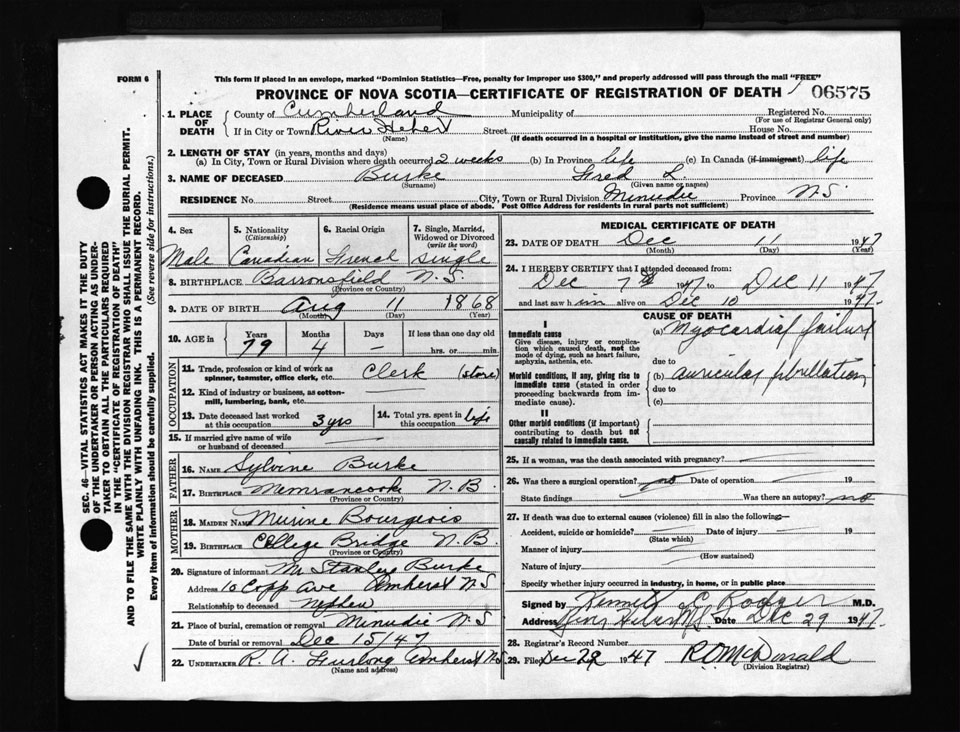 FORM 6
This form if placed in an envelope, marked "Dominion Statistics—Free, penalty for improper use $300," and properly addressed will pass through the mail "FREE"
PROVINCE OF NOVA SCOTIA—CERTIFICATE OF REGISTRATION OF DEATH 06575
SEC. 46—VITAL STATISTICS ACT MAKES IT THE DUTY
OF THE UNDERTAKER OR PERSON ACTING AS UNDER-
TAKER TO OBTAIN ALL THE PARTICULARS REQUIRED
IN THE "CERTIFICATE OF REGISTRATION OF DEATH"
AND TO FILE THE SAME WITH THE DIVISION REGISTRAR WHO SHALL ISSUE THE BURIAL PERMIT.
WRITE PLAINLY WITH UNFADING INK. THIS IS A PERMANENT RECORD.
Every item of information should be carefully supplied. (See reverse side for instructions.)
1. PLACE OF DEATH
County of Cumberland Municipality of Registered No.
(For use of Registrar General only)
If in City or Town River Hebert Street House No.
(Name) (If death occurred in a hospital or institution, give the name instead of street and number)
2. LENGTH OF STAY (in years, months and days)
(a) In City, Town or Rural Division where death occurred 2 weeks (b) In Province life (c) In Canada (if immigrant) life
3. NAME OF DECEASED Burke Fred L.
(Surname) (Given name or names)
RESIDENCE No. Street City, Town or Rural Division Minudie Province N.S.
(Residence means usual place of abode. Post Office Address for residents in rural parts not sufficient)
4. Sex Male
5. Nationality (Citizenship) Canadian
6. Racial Origin French
7. Single, Married, Widowed or Divorced (write the word) Single
8. BIRTHPLACE Barronsfield N.S.
(Province or Country)
9. DATE OF BIRTH Aug 11 1868
(Month) (Day) (Year)
10. AGE in Years 79 Months 4 Days — If less than one day old
hrs. or min.
OCCUPATION
11. Trade, profession or kind of work as spinner, teamster, office clerk, etc. Clerk (store)
12. Kind of industry or business, as cotton-mill, lumbering, bank, etc.
13. Date deceased last worked at this occupation 3 yrs
14. Total yrs. spent in this occupation life
15. If married give name of wife or husband of deceased —
FATHER
16. NAME Sylvine Burke
17. BIRTHPLACE Memramcook N.B.
(Province or Country)
MOTHER
18. MAIDEN NAME Bourgeois
19. BIRTHPLACE College Bridge N.B.
(Province or Country)
20. Signature of informant Mr Stanley Burke
Address 10 Copp Ave Amherst N S
Relationship to deceased Nephew
21. Place of burial, cremation or removal Minudie N S
Date of burial or removal Dec 15/47
22. UNDERTAKER R. A. Furlong Amherst N.S.
(Name and address)
MEDICAL CERTIFICATE OF DEATH
23. DATE OF DEATH Dec 11 1947
(Month) (Day) (Year)
24. I HEREBY CERTIFY that I attended deceased from:
Dec 7th 1947 to Dec 11 1947
and last saw him alive on Dec 10 1947.
CAUSE OF DEATH
I
Immediate cause
Give disease, injury or complication which caused death, not the mode of dying, such as heart failure, asphyxia, asthenia, etc.
(a) Myocardial failure
due to
Morbid conditions, if any, giving rise to immediate cause (stated in order proceeding backwards from immediate cause).
(b) auricular fibrillation
due to
(c)
II
Other morbid conditions (if important) contributing to death but not causally related to immediate cause.
25. If a woman, was the death associated with pregnancy?
26. Was there a surgical operation? no Date of operation 19
State findings Was there an autopsy? no
27. If death was due to external causes (violence) fill in also the following:—
Accident, suicide or homicide? Date of injury 19
(State which)
Manner of injury
(How sustained)
Nature of injury
Specify whether injury occurred in industry, in home, or in public place
Signed by Kenneth C Rodger M.D.
Address Date Dec 29 1947.
28. Registrar's Record Number
29. Filed Dec 29 1947 R.D. McDonald
(Division Registrar)